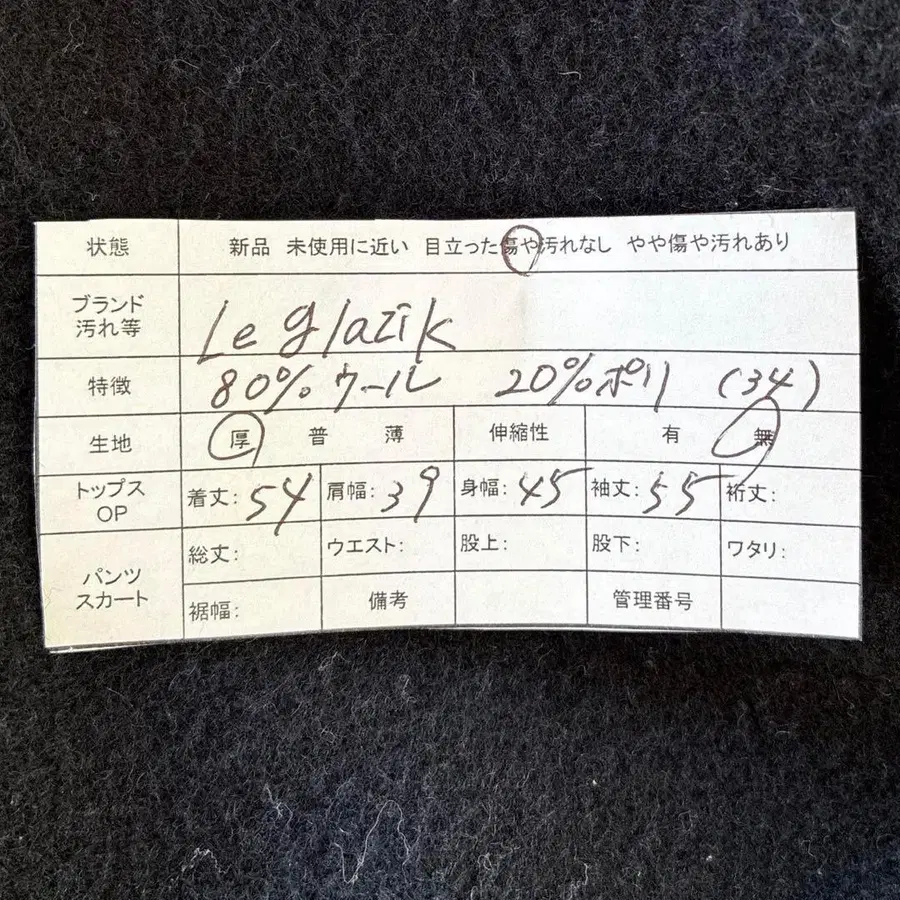 状態 新品 未使用に近い 目立った傷や汚れなし やや傷や汚れあり
ブランド
汚れ等 Le glazik
特徴 80%ウール 20%ポリ (34)
生地 厚 普 薄 伸縮性 有 無
トップス
OP 着丈:54 肩幅:39 身幅:45 袖丈:55 裄丈:
パンツ
スカート 総丈: ウエスト: 股上: 股下: ワタリ:
裾幅: 備考 管理番号